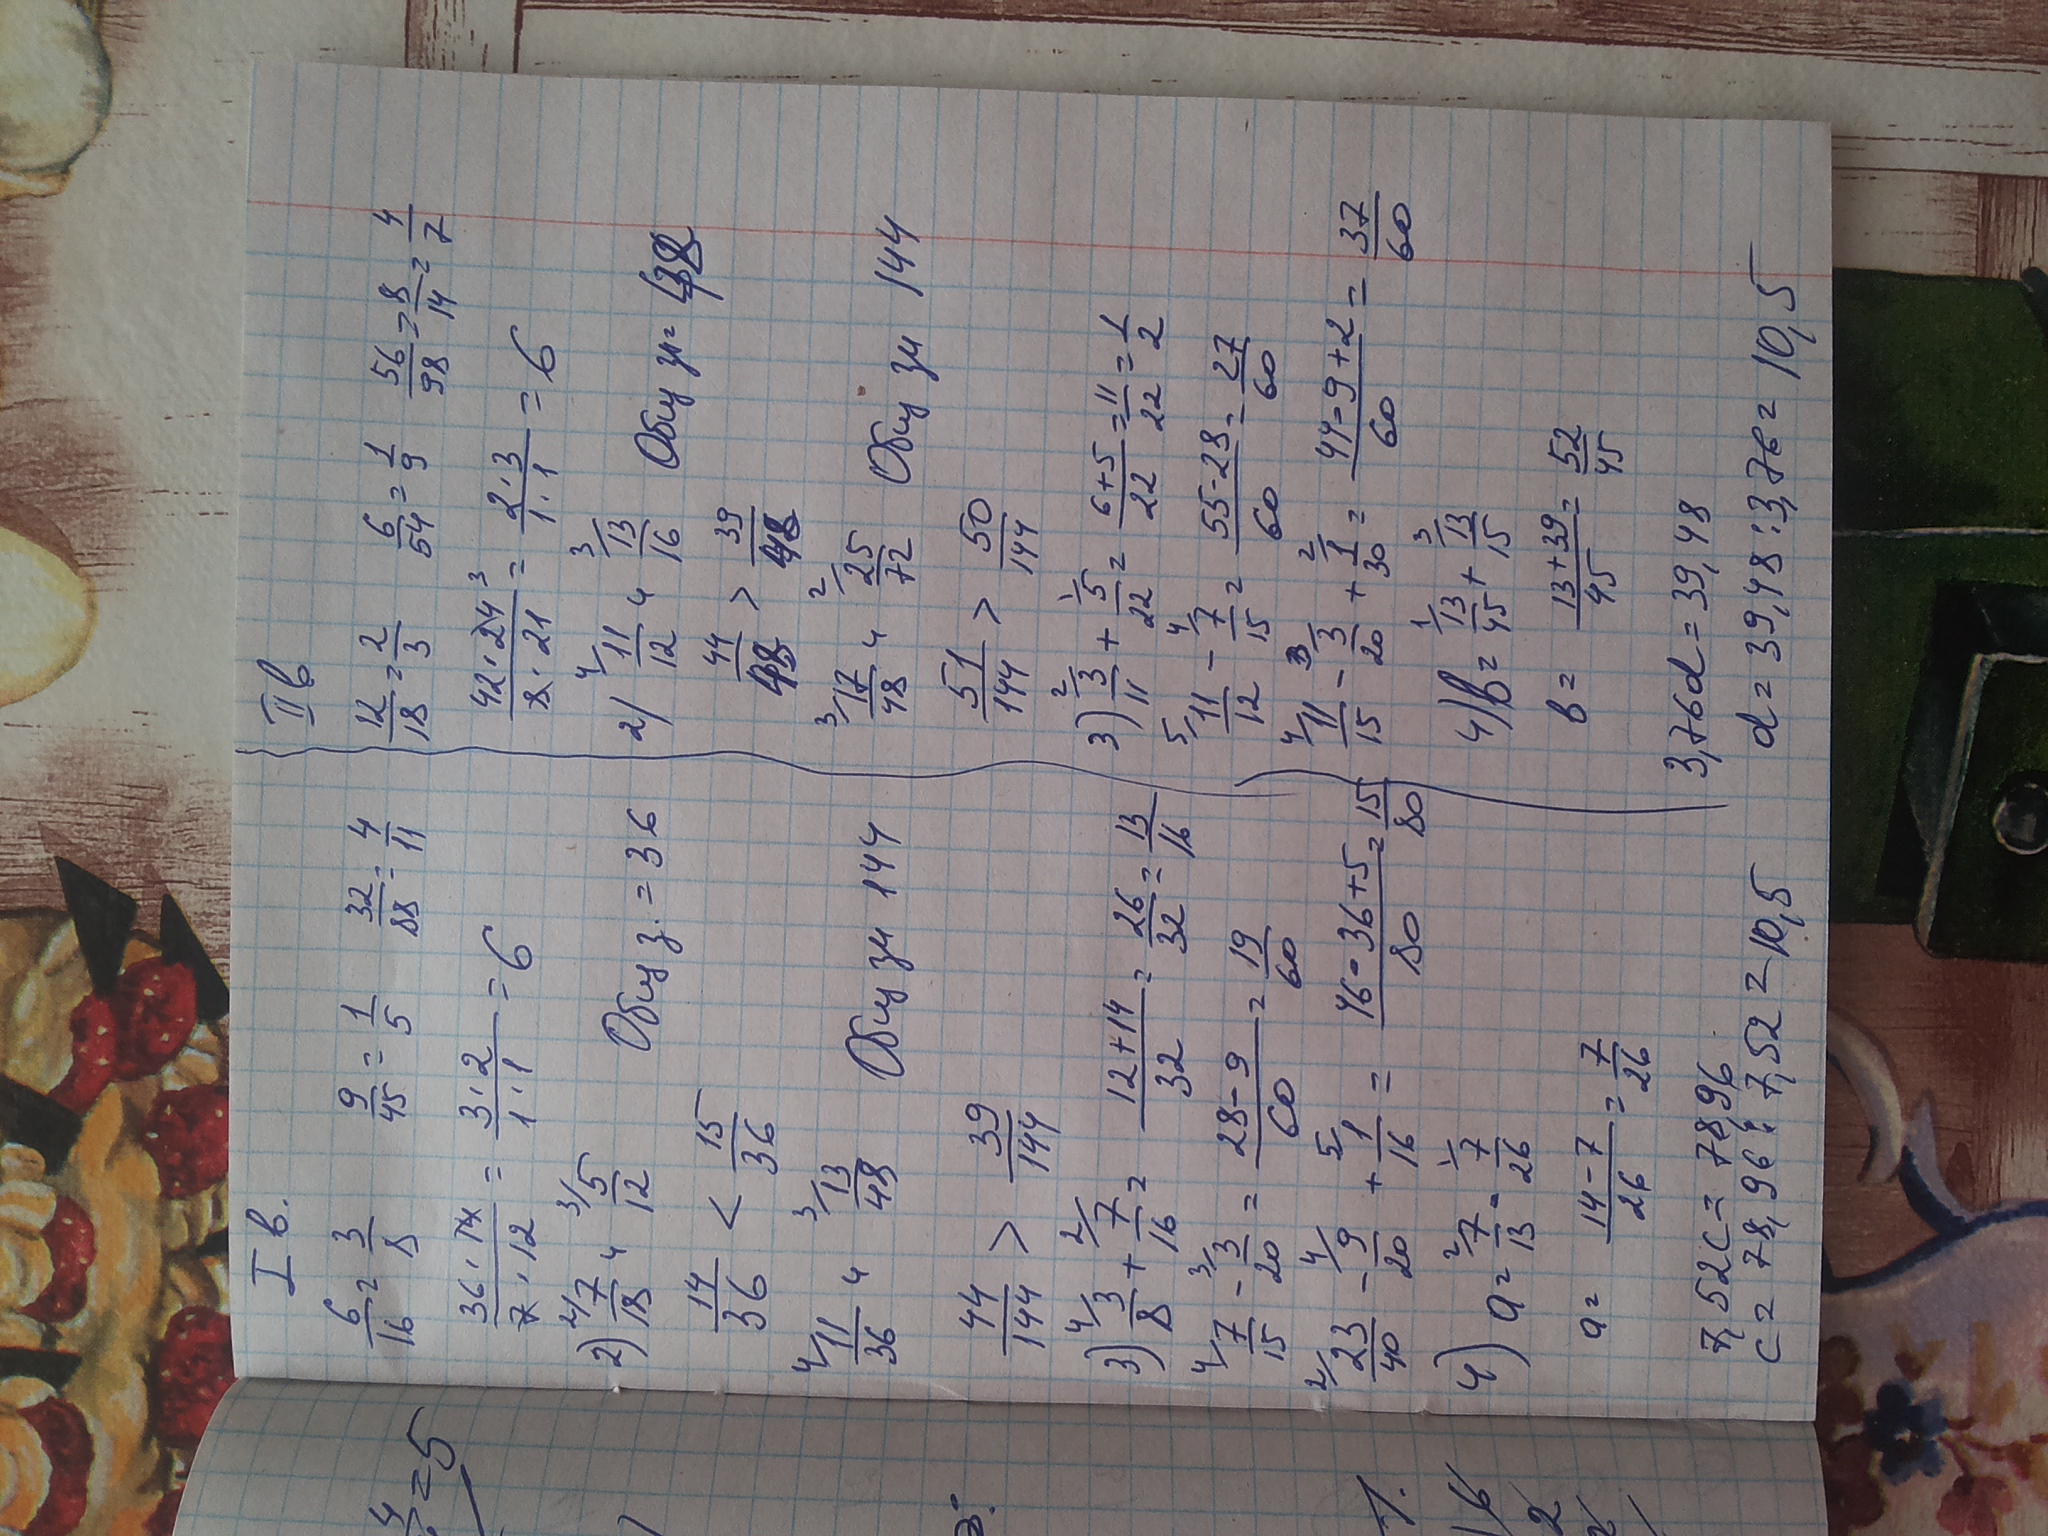 I в.
6/16 = 3/8 9/45 = 1/5 32/88 = 4/11
36 · 14 / 7 · 12 = 3 · 2 / 1 · 1 = 6
2) 2/ 7/18 и 3/ 5/12 Общ з. = 36
14/36 < 15/36
4/ 11/36 и 3/ 13/48 Общ зн 144
44/144 > 39/144
3) 4/ 3/8 + 2/ 7/16 = 12+14 / 32 = 26/32 = 13/16
4/ 7/15 - 3/ 3/20 = 28-9 / 60 = 19/60
2/ 23/40 - 4/ 9/20 + 5/ 1/16 = 46-36+5 / 80 = 15/80
4) a = 2/ 7/13 - 1/ 7/26
a = 14-7 / 26 = 7/26
7,52c = 78,96
c = 78,96 : 7,52 = 10,5
II в
12/18 = 2/3 6/54 = 1/9 56/98 = 8/14 = 4/7
42 · 24 3 / 8 · 21 = 2 · 3 / 1 · 1 = 6
2) 4/ 11/12 и 3/ 13/16 Общ зн =
44/48 > 39/48
3/ 17/48 и 2/ 25/72 Общ зн 144
51/144 > 50/144
3) 2/ 3/11 + 1/ 5/22 = 6+5 / 22 = 11/22 = 1/2
5/ 11/12 - 4/ 7/15 = 55-28 / 60 = 27/60
4/ 11/15 - 3/ 3/20 + 2/ 1/30 = 44-9+2 / 60 = 37/60
4) в = 1/ 13/45 + 3/ 13/15
в = 13+39 / 45 = 52/45
3,76d = 39,48
d = 39,48 : 3,76 = 10,5